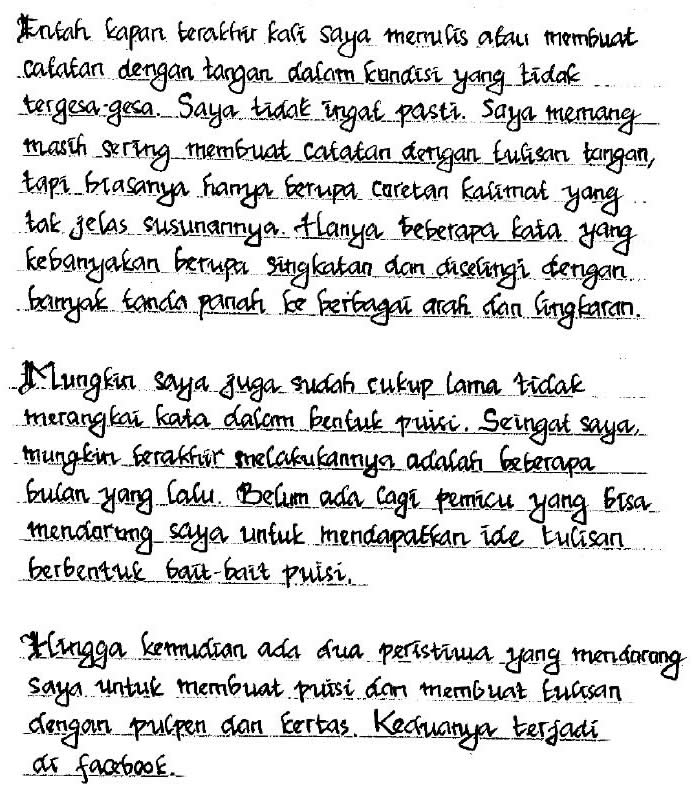 Entah kapan terakhir kali saya menulis atau membuat
catatan dengan tangan dalam kondisi yang tidak
tergesa-gesa. Saya tidak ingat pasti. Saya memang
masih sering membuat catatan dengan tulisan tangan,
tapi biasanya hanya berupa coretan kalimat yang
tak jelas susunannya. Hanya beberapa kata yang
kebanyakan berupa singkatan dan diselingi dengan
banyak tanda panah ke berbagai arah dan lingkaran.

Mungkin saya juga sudah cukup lama tidak
merangkai kata dalam bentuk puisi. Seingat saya,
mungkin terakhir melakukannya adalah beberapa
bulan yang lalu. Belum ada lagi pemicu yang bisa
mendorong saya untuk mendapatkan ide tulisan
berbentuk bait-bait puisi.

Hingga kemudian ada dua peristiwa yang mendorong
saya untuk membuat puisi dan membuat tulisan
dengan pulpen dan kertas. Keduanya terjadi
di facebook.